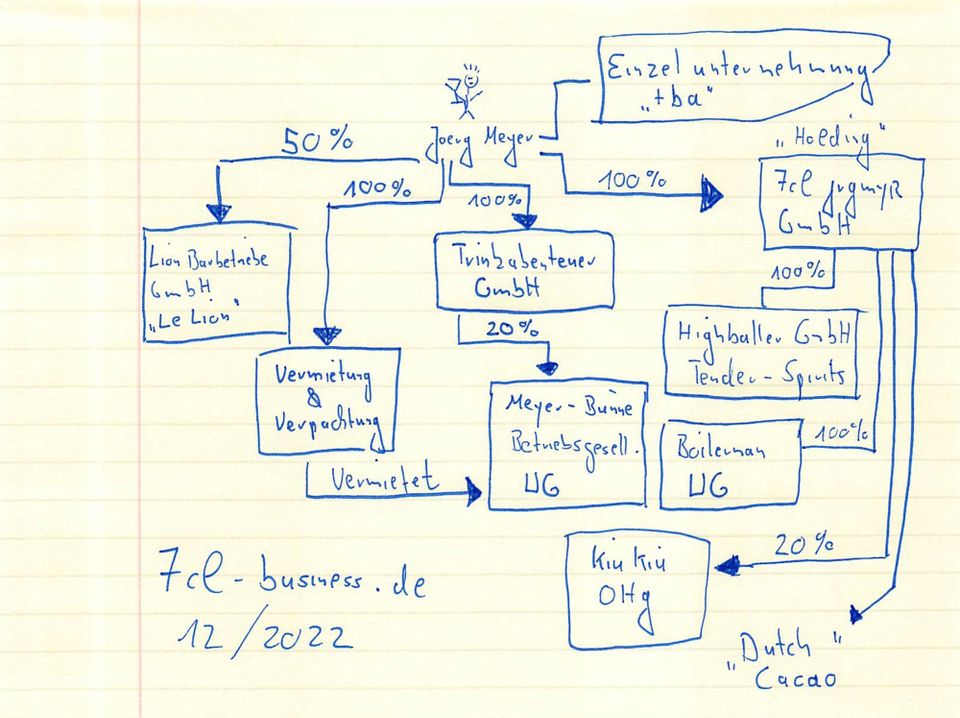 Einzelunternehmung
„tba"
Joerg Meyer
50%
100%
100%
100%
„Holding"
7cl jrgmyr
GmbH
Lion Barbetriebe
GmbH
„Le Lion"
Trinkabenteuer
GmbH
100%
20%
Highballer GmbH
Tender-Spirits
Vermietung
&
Verpachtung
Meyer-Bünne
Betriebsgesell.
UG
Boilerman
UG
100%
Vermietet
Kiu Kiu
OHg
20%
7cl-business.de
12/2022
„Dutch"
Cacao